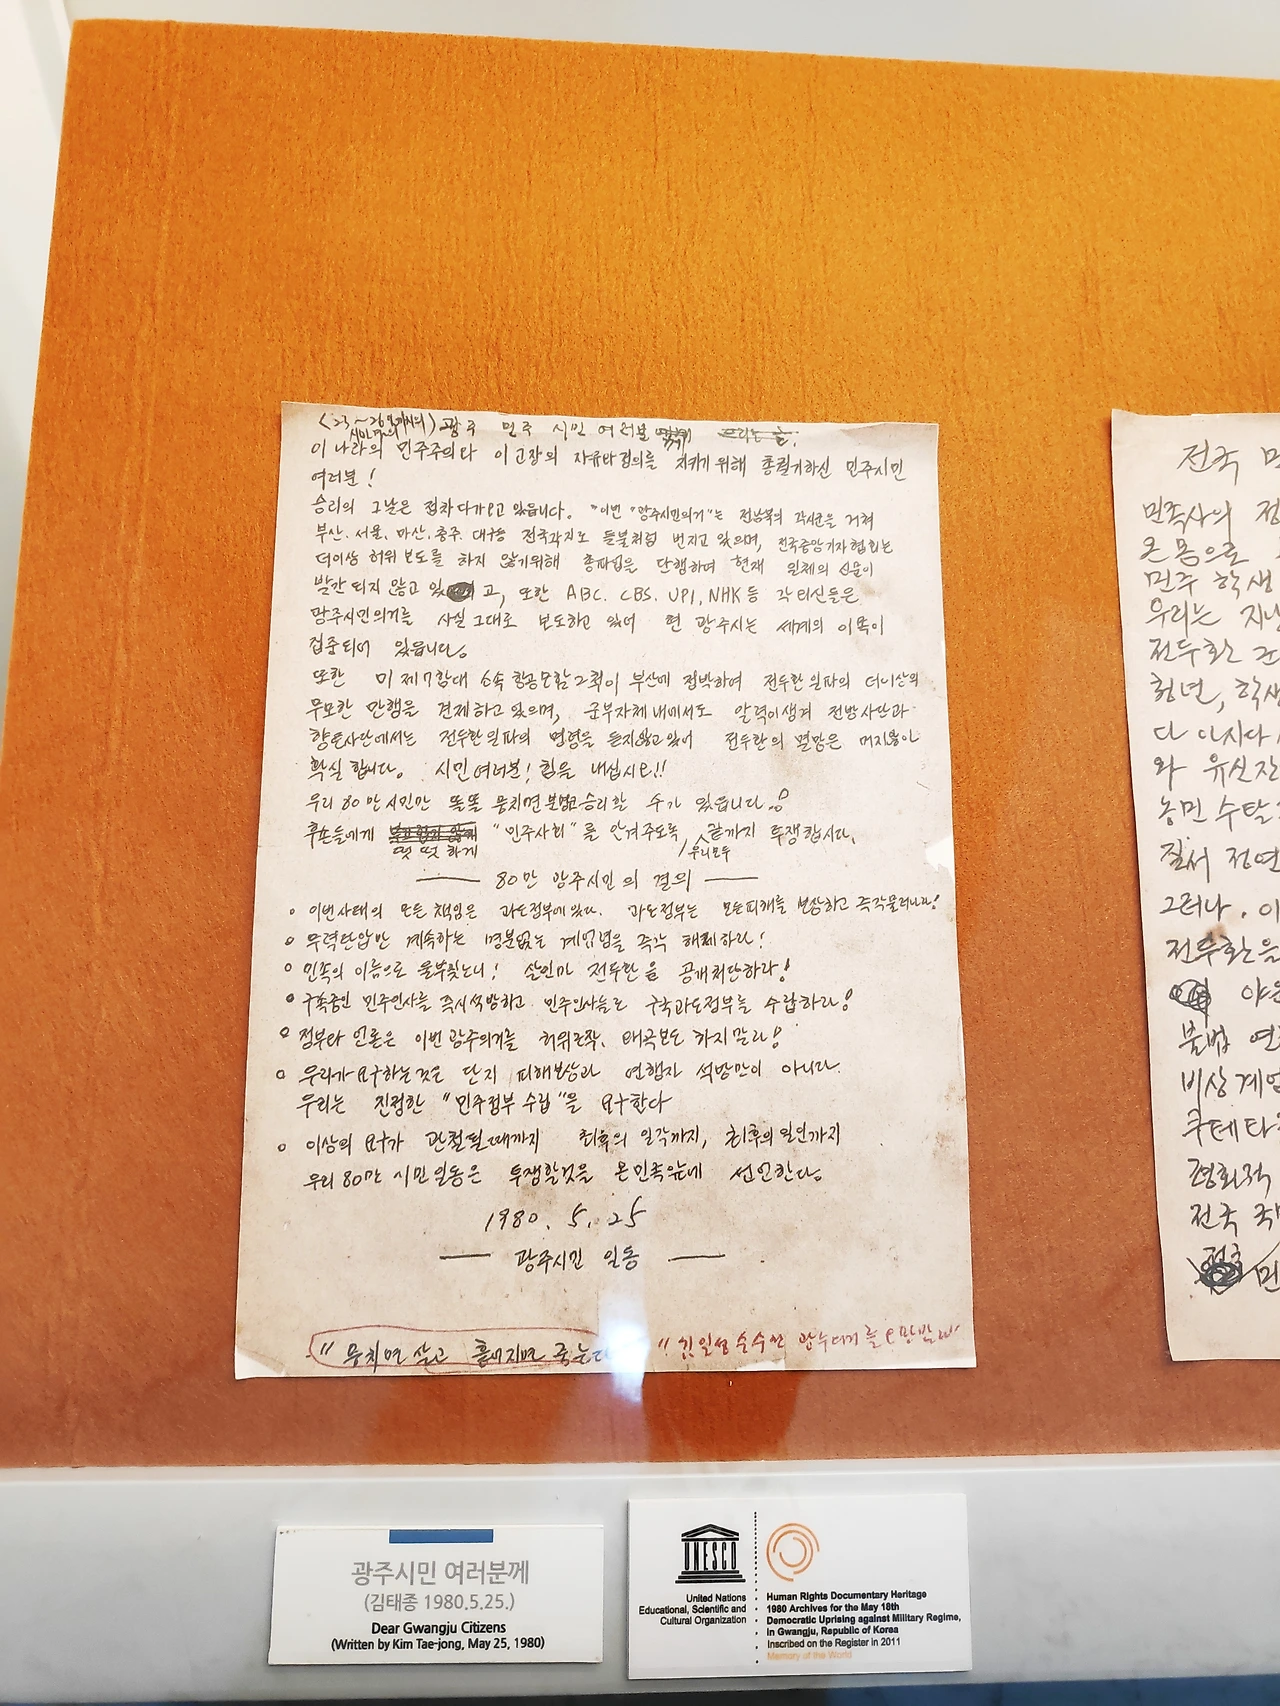 광주 민주 시민 여러분
이 나라의 민주주의와 이 고장의 자유와 정의를 지키기 위해 총궐기하신 민주시민
여러분!
승리의 그날은 점차 다가오고 있읍니다. "이번 "광주시민의거"는 전남북의 각시군을 거쳐
부산. 서울. 마산. 충주. 대구등 전국각지로 들불처럼 번지고 있으며, 전국중앙기자협회는
더이상 허위 보도를 하지 않기위해 총파업을 단행하며 현재 일체의 신문이
발간되지 않고 있고, 또한 ABC. CBS. UPI, NHK등 각 티신들은
광주시민의거를 사실 그대로 보도하고 있어 현 광주시는 세계의 이목이
집중되어 있읍니다.
또한 미 제7함대 소속 항공모함 2척이 부산에 정박하여 전두환일파의 더이상의
무모한 만행을 견제하고 있으며, 군부자체내에서도 알력이생겨 전방사단과
향토사단에서는 전두환일파의 명령을 듣지않고있어 전두환의 멸망은 머지않아
확실합니다. 시민여러분! 힘을 내십시요!!
우리 80만 시민만 똘똘 뭉치면 분명코 승리할 수가 있읍니다.!
후손들에게 떳떳하게 "민주사회"를 안겨주도록, 우리모두 끝까지 투쟁합시다.
80만 광주시민의 결의
이번사태의 모든 책임은 과도정부에있다. 과도정부는 모든피해를 보상하고 즉각물러나라!
무력탄압만 계속하는 명분없는 계엄령을 즉각 해제하라!
민족의 이름으로 울부짖노니! 살인마 전두환을 공개처단하라!
구속중인 민주인사를 즉시석방하고 민주인사들로 구국과도정부를 수립하라!
정부와 언론은 이번 광주의거를 허위조작, 왜곡보도 하지말라!
우리가 요구하는것은 단지 피해보상과 연행자 석방만이 아니다.
우리는 진정한 "민주정부 수립"을 요구한다
이상의 요구가 관철될때까지 최후의 일각까지, 최후의 일인까지
우리 80만 시민 일동은 투쟁할것을 온민족앞에 선언한다.
1980. 5. 25
광주시민 일동
"뭉치면 살고 흩어지면 죽는다 "김일성 순수한 광주의거를 오판말라"
전국
민족사의
온 몸으로
민주 학생
우리는 지난
전두환
청년, 학생
다 아시다
와 유신잔
농민 수탈
질서 정연
그러나, 이
전두환을
불법
비상계엄
쿠데타
평화적
전국
광주시민 여러분께
(김태종 1980.5.25.)
Dear Gwangju Citizens
(Written by Kim Tae-jong, May 25, 1980)
UNESCO
United Nations
Educational, Scientific and
Cultural Organization
Human Rights Documentary Heritage
1980 Archives for the May 18th
Democratic Uprising against Military Regime,
in Gwangju, Republic of Korea
Inscribed on the Register in 2011
Memory of the World